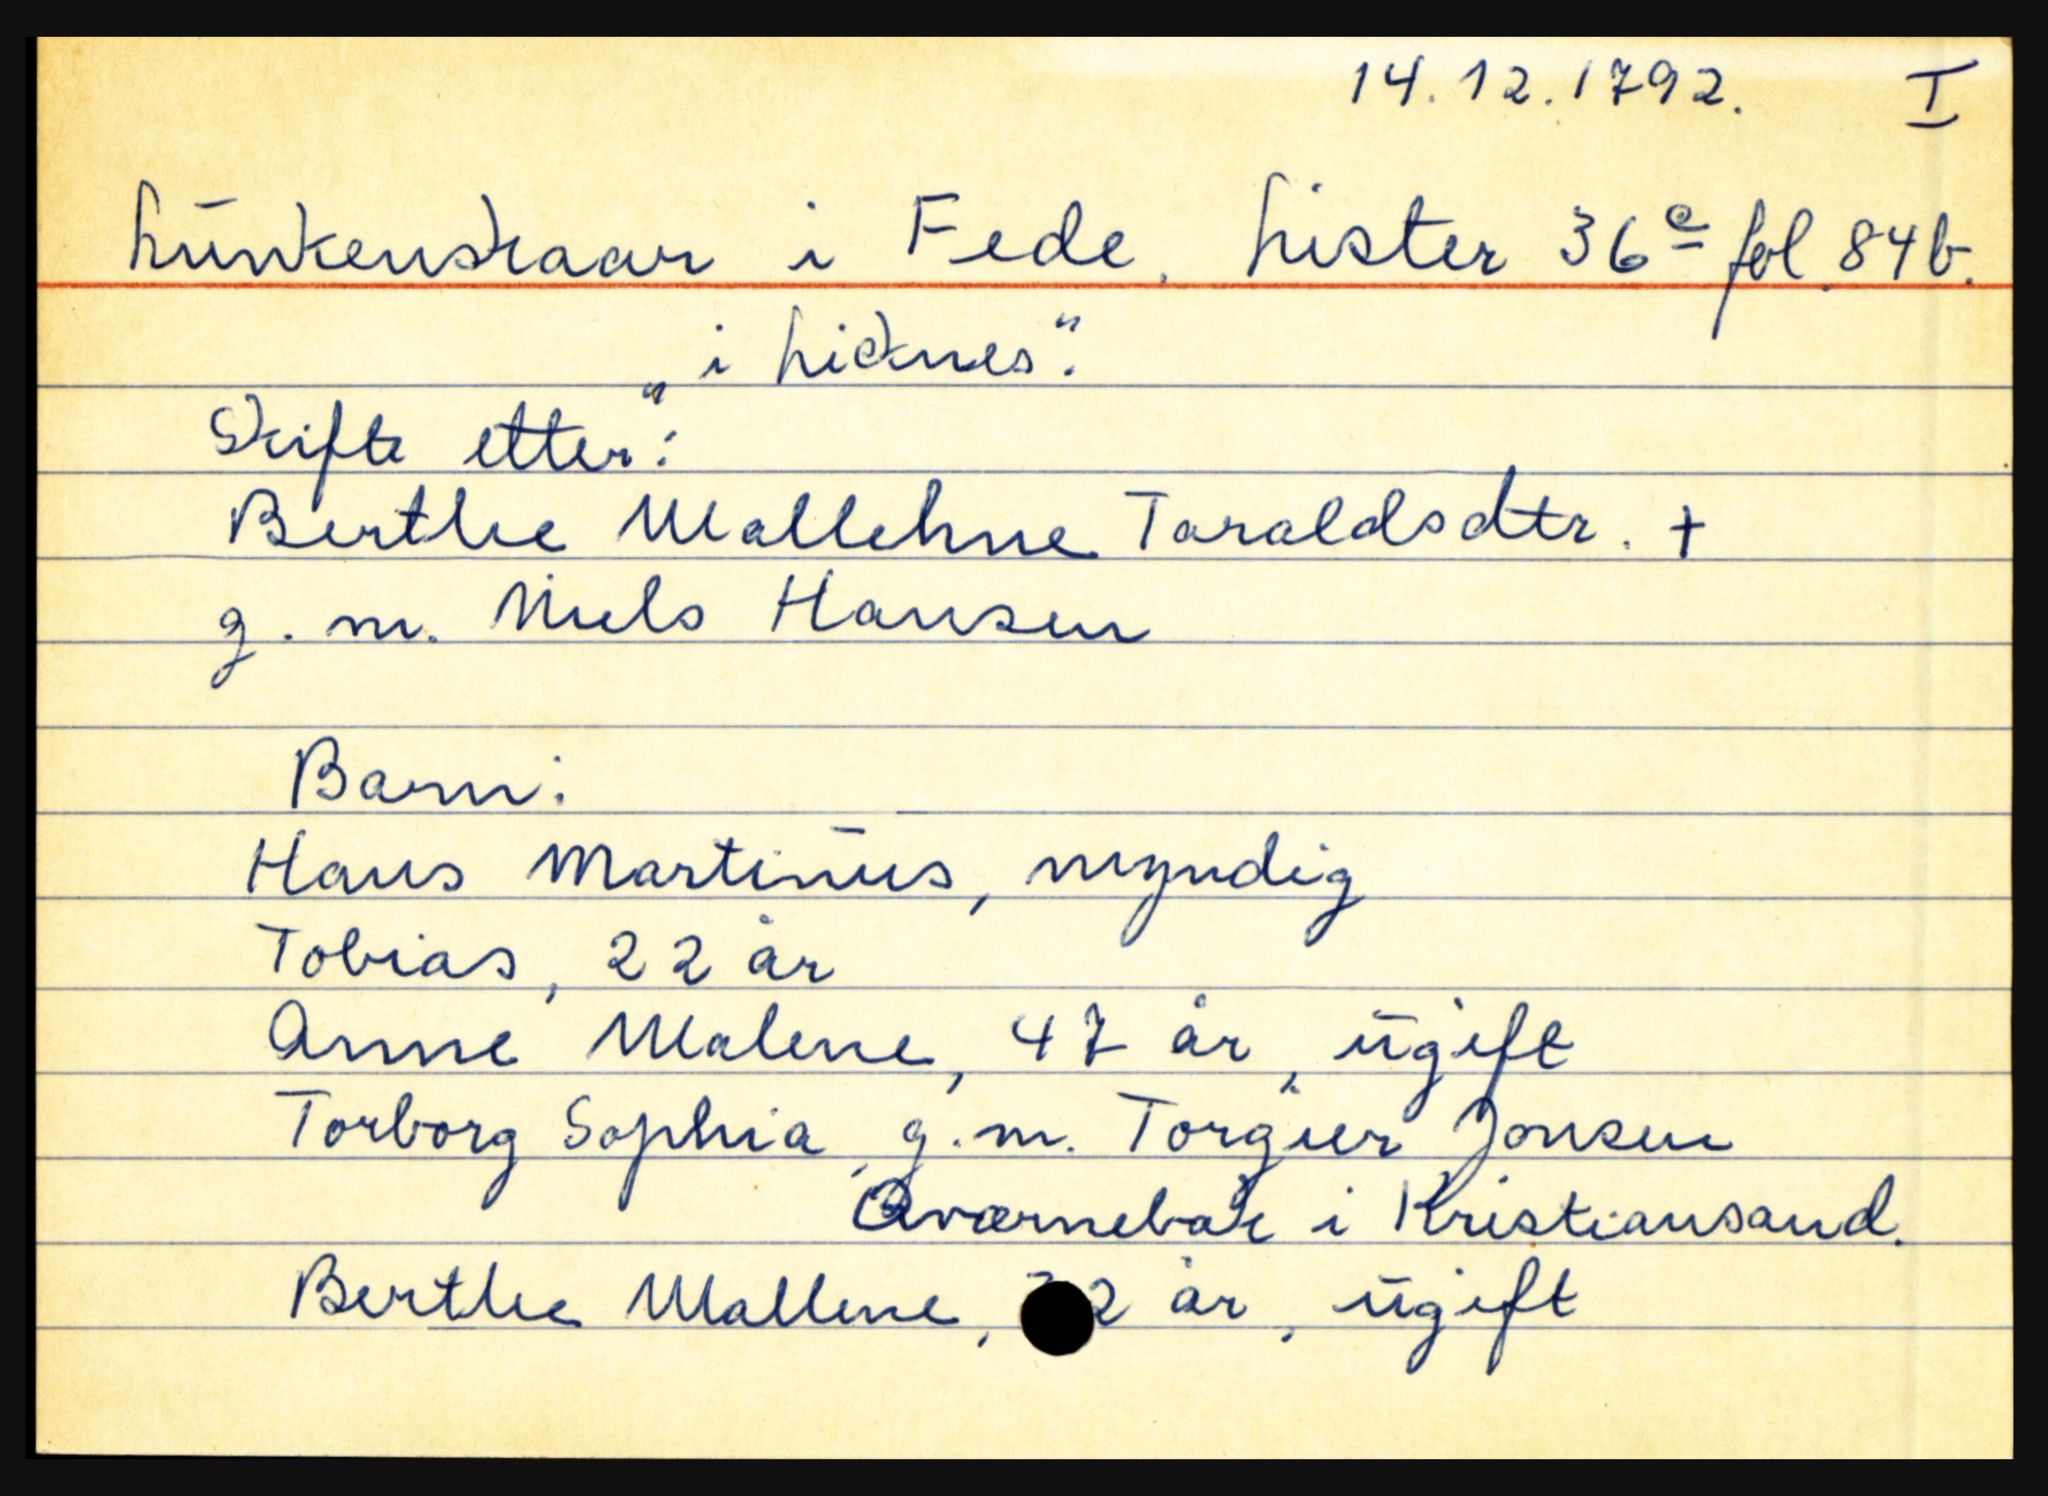 14.12.1792. I
Lunkenskaar i Fede. Lister 36e fol. 84b.
"i Licknes".
Skifte etter:
Berthe Mallehne Taraldsdtr. +
g. m. Niels Hansen
Barn:
Hans Martinus, myndig
Tobias, 22 år
Anne Malene, 47 år, ugift
Torborg Sophia, g.m. Torgier Jonsen
Qværnebak i Kristiansand.
Berthe Mallene, år, ugift